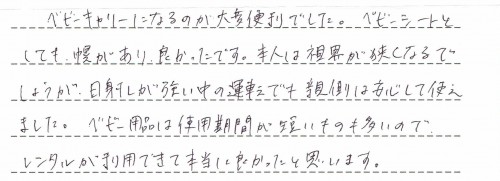 ベビーキャリーになるのが大変便利でした。ベビーシートと
しても、幌があり、良かったです。本人は視界が狭くなるで
しょうが、日射しが強い中の運転でも親側は安心して使え
ました。ベビー用品は使用期間が短いものも多いので、
レンタルが利用できて本当に良かったと思います。